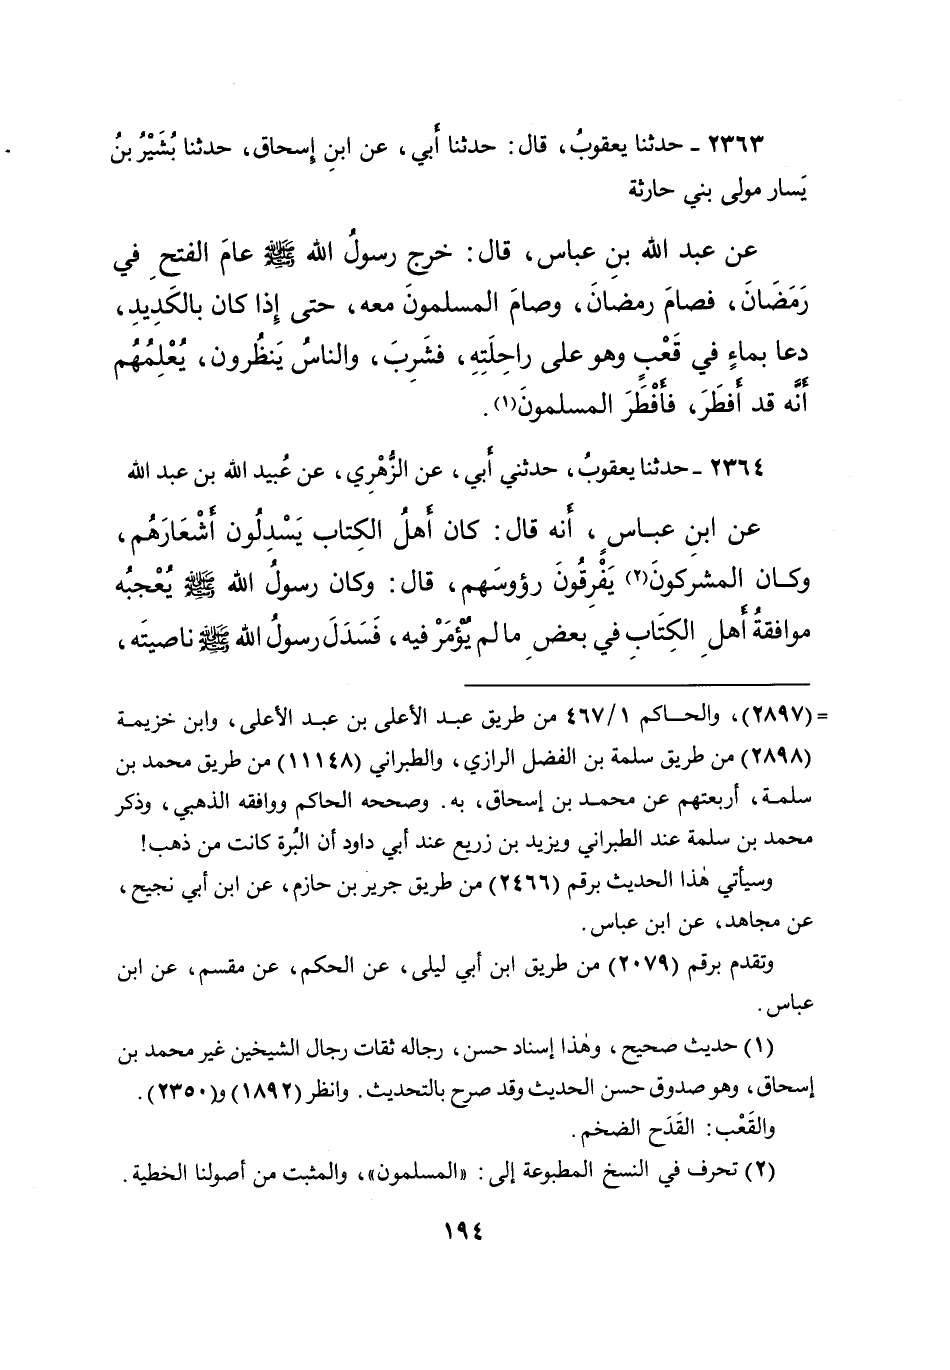 ٢٣٦٣ - حدثنا يعقوبُ، قال: حدثنا أَبي، عن ابنِ إسحاق، حدثنا بُشَيْرُ بنُ
يَسار مولى بني حارثة
عن عبد الله بنِ عباس، قال: خرج رسولُ الله ﷺ عامَ الفتحِ في
رَمَضَانَ، فصامَ رمضانَ، وصامَ المسلمونَ معه، حتى إذا كان بالكَدِيدِ،
دعا بماءٍ في قَعْبٍ وهو على راحِلَتِهِ، فشَرِبَ، والناسُ يَنظُرون، يُعْلِمُهُم
أَنَّه قد أَفطَرَ، فأَفْطَرَ المسلمونَ(١).
٢٣٦٤ - حدثنا يعقوبُ، حدثني أَبي، عن الزُّهْرِي، عن عُبيد الله بن عبد الله
عن ابنِ عباسٍ، أَنه قال: كان أَهلُ الكِتاب يَسْدِلُون أَشْعَارَهُم،
وكان المشركونَ(٢) يَفْرِقُونَ رؤوسَهم، قال: وكان رسولُ الله ﷺ يُعْجِبُه
موافقةُ أَهلِ الكِتَابِ في بعضِ ما لم يُؤْمَرْ فيه، فَسَدَلَ رسولُ الله ﷺ ناصيتَه،
= (٢٨٩٧)، والحاكم ٤٦٧/١ من طريق عبد الأعلى بن عبد الأعلى، وابن خزيمة
(٢٨٩٨) من طريق سلمة بن الفضل الرازي، والطبراني (١١١٤٨) من طريق محمد بن
سلمة، أربعتهم عن محمد بن إسحاق، به. وصححه الحاكم ووافقه الذهبي، وذكر
محمد بن سلمة عند الطبراني ويزيد بن زريع عند أبي داود أن البُرة كانت من ذهب!
وسيأتي هٰذا الحديث برقم (٢٤٦٦) من طريق جرير بن حازم، عن ابن أبي نجيح،
عن مجاهد، عن ابن عباس.
وتقدم برقم (٢٠٧٩) من طريق ابن أبي ليلى، عن الحكم، عن مقسم، عن ابن
عباس.
(١) حديث صحيح، وهٰذا إسناد حسن، رجاله ثقات رجال الشيخين غير محمد بن
إسحاق، وهو صدوق حسن الحديث وقد صرح بالتحديث. وانظر (١٨٩٢) و(٢٣٥٠).
والقَعْب: القَدَح الضخم.
(٢) تحرف في النسخ المطبوعة إلى: «المسلمون»، والمثبت من أصولنا الخطية.
١٩٤